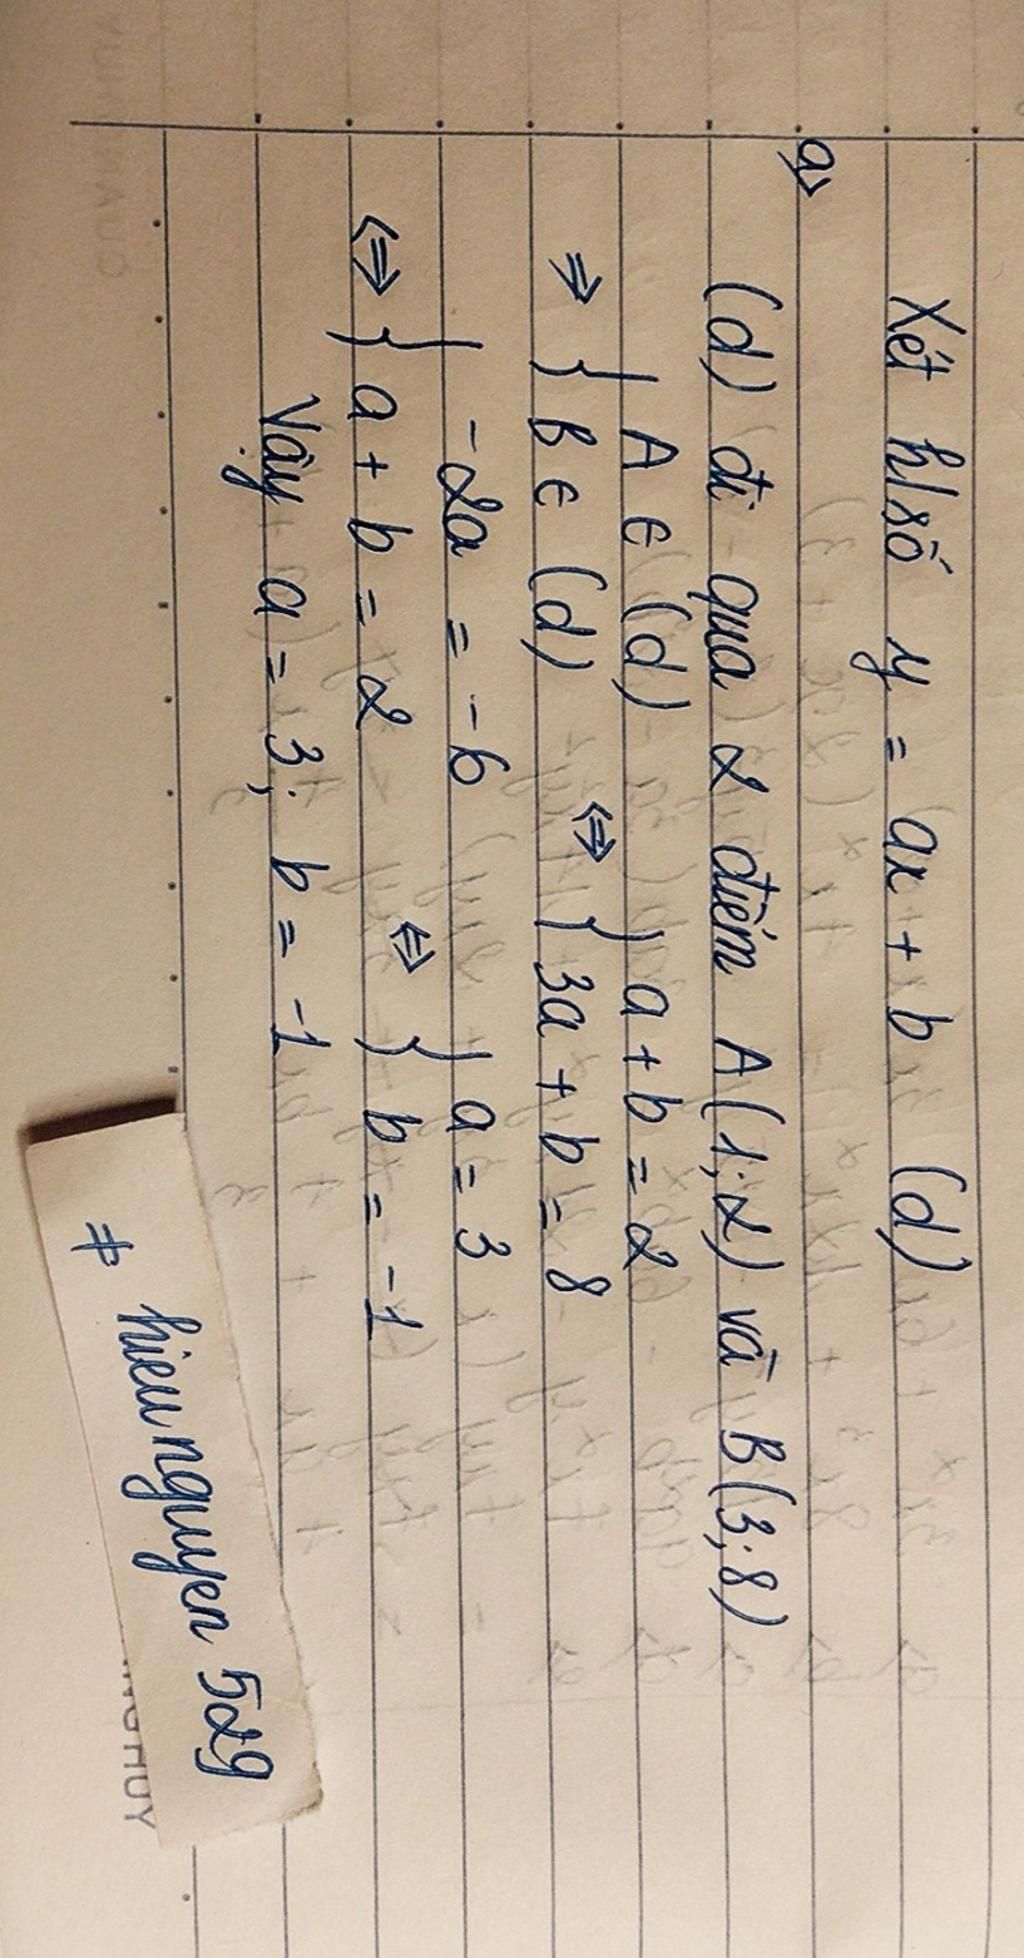 Xét h/số y = ax + b (d)
a,
(d) đi qua 2 điểm A(1;2) và B(3;8)
⇒ { A ∈ (d)
B ∈ (d)
⇔ { a + b = 2
3a + b = 8
⇔ { -2a = -6
a + b = 2
⇔ { a = 3
b = -1
Vậy a = 3; b = -1
# hieunguyen 529
NGHUY